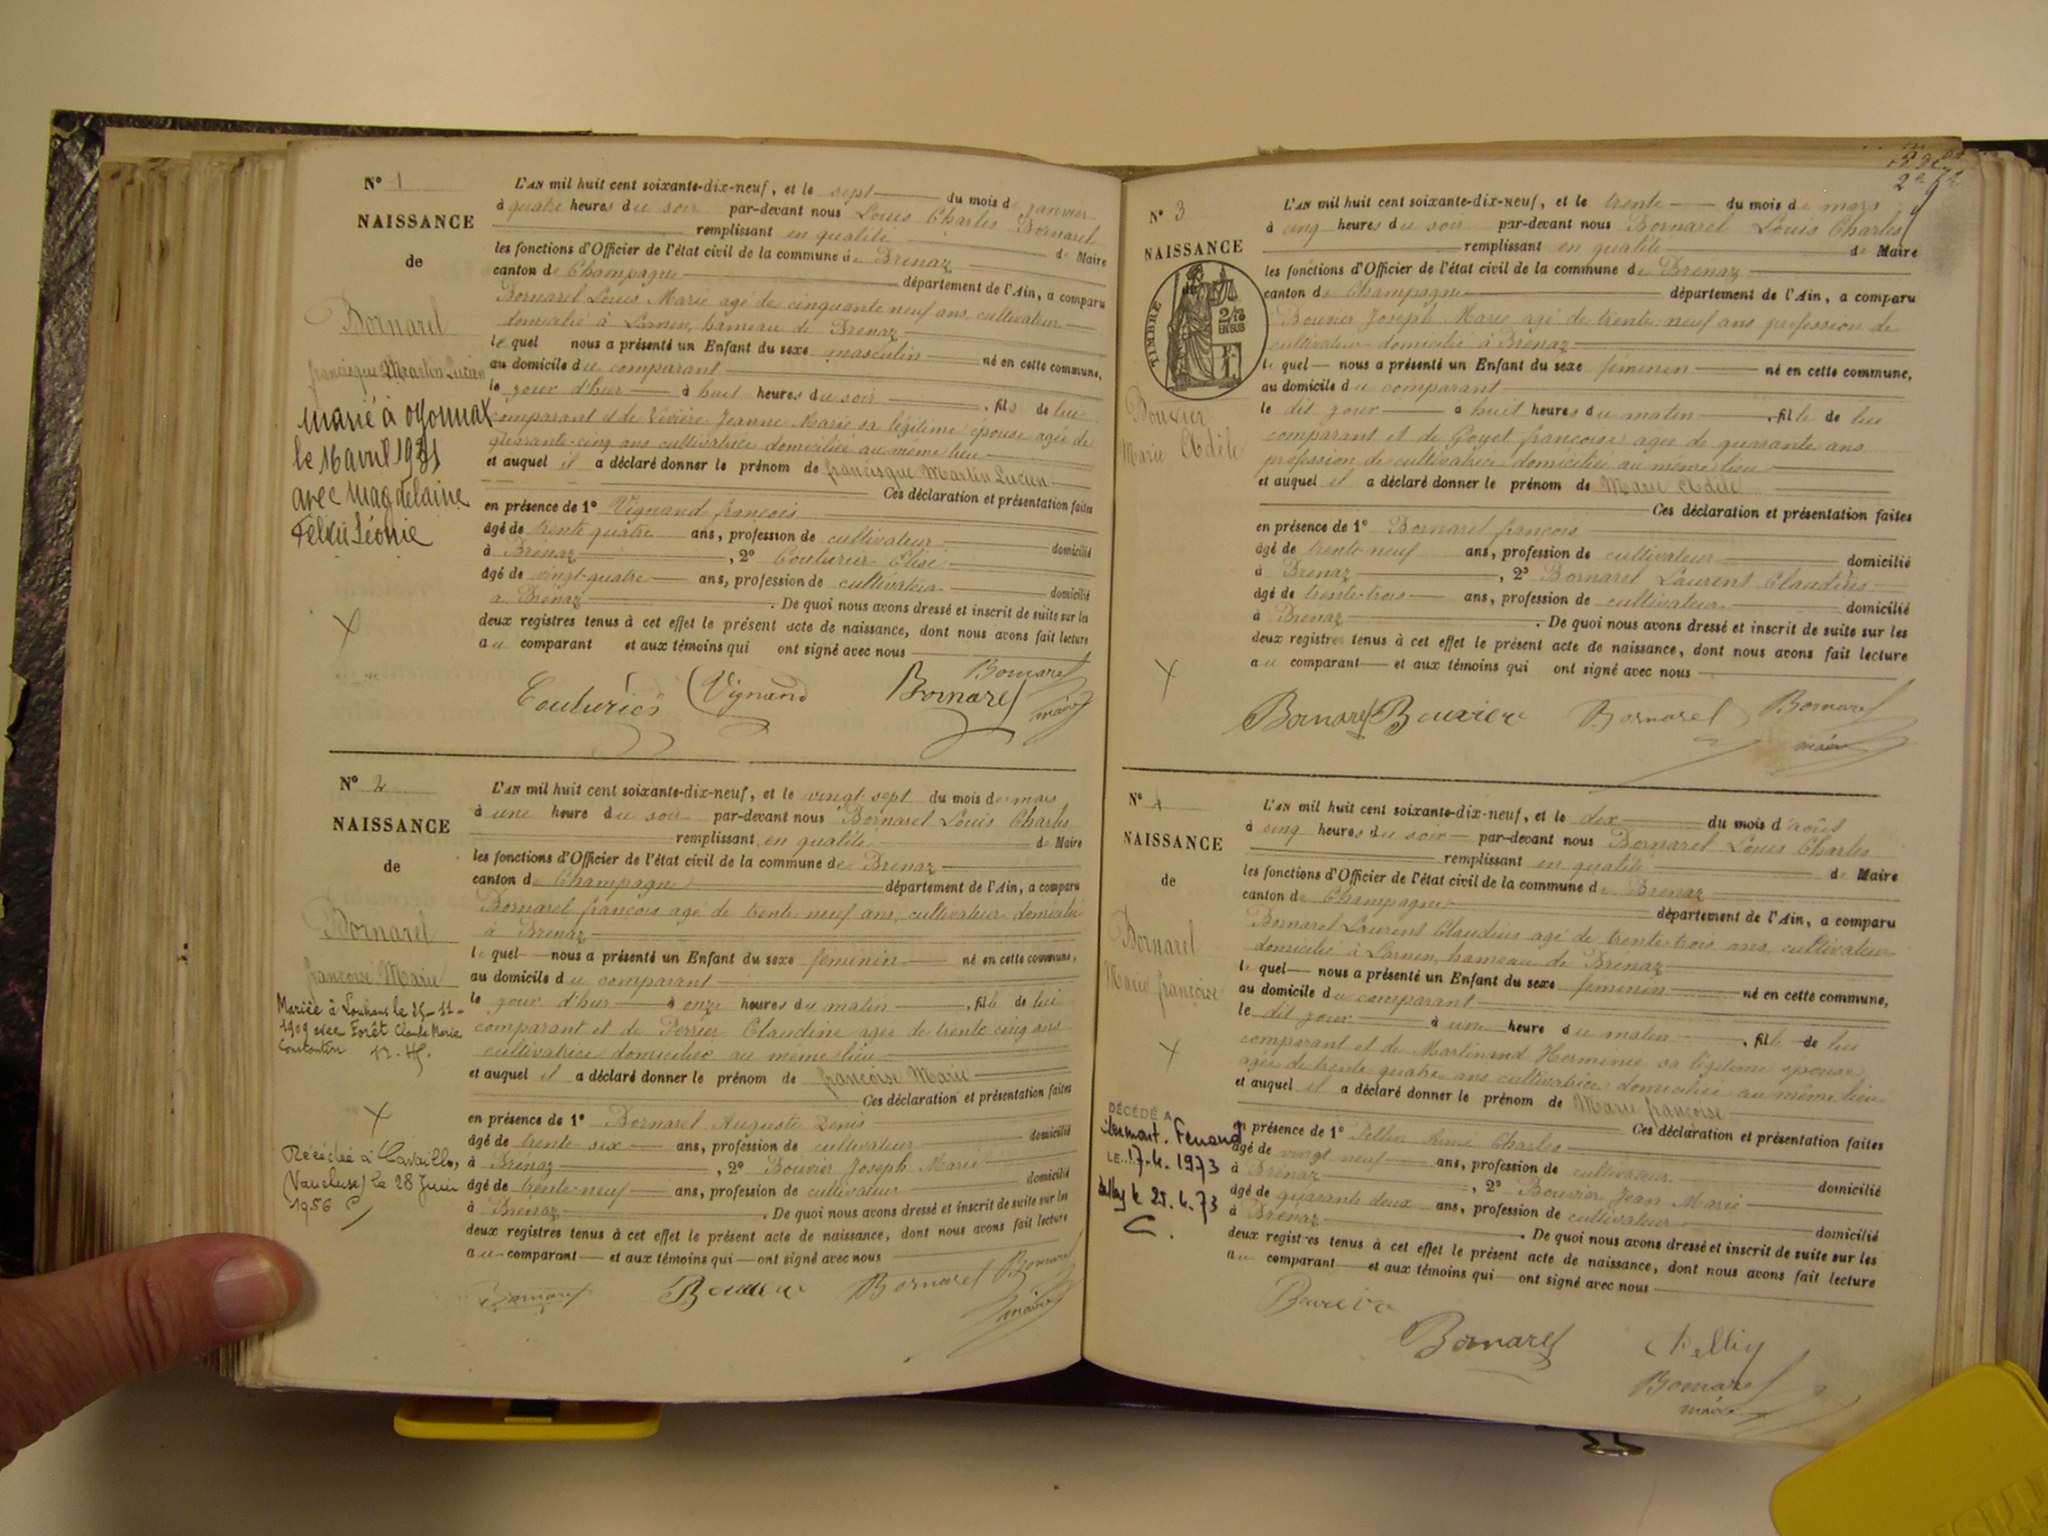 N° 1
NAISSANCE
de
Bornarel
francisque Martin Lucien
Marié à Oyonnax
le 16 avril 1921
avec Magdelaine
Léonie
L'AN mil huit cent soixante-dix-neuf, et le sept du mois de janvier
à quatre heures du soir par-devant nous Louis Charles Bornarel
remplissant en qualité de Maire
les fonctions d'Officier de l'état civil de la commune de Brénaz
canton de Champagne département de l'Ain, a comparu
Bornarel Louis Marie agé de cinquante neuf ans, cultivateur
domicilié à Lamen, hameau de Brénaz
lequel nous a présenté un Enfant du sexe masculin né en cette commune,
au domicile du comparant
le jour d'hier à huit heures du soir, fils de lui
comparant et de Jeanne Marie sa légitime épouse agée de
quarante-cinq ans cultivatrice domiciliée au même lieu
et auquel il a déclaré donner le prénom de francisque Martin Lucien
Ces déclaration et présentation faites
en présence de 1° Vignand françois
âgé de trente quatre ans, profession de cultivateur domicilié
à Brénaz, 2° Couturier Elisé
âgé de vingt-quatre ans, profession de cultivateur domicilié
à Brénaz. De quoi nous avons dressé et inscrit de suite sur les
deux registres tenus à cet effet le présent acte de naissance, dont nous avons fait lecture
au comparant et aux témoins qui ont signé avec nous
Couturier Vignand Bornarel Bornarel
maire
N° 2
NAISSANCE
de
Bornarel
françoise Marie
Mariée à Louhans le 25-11-
1909 avec Forêt Claude Marie
Constantin
Décédée à Cavaillon
(Vaucluse) le 28 Juin
1956
L'AN mil huit cent soixante-dix-neuf, et le vingt-sept du mois de mars
à une heure du soir par-devant nous Bornarel Louis Charles
remplissant en qualité de Maire
les fonctions d'Officier de l'état civil de la commune de Brénaz
canton de Champagne département de l'Ain, a comparu
Bornarel françois agé de trente neuf ans, cultivateur domicilié
à Brénaz
lequel nous a présenté un Enfant du sexe féminin né en cette commune,
au domicile du comparant
le jour d'hier à onze heures du matin, fille de lui
comparant et de Perrier Claudine agée de trente cinq ans
cultivatrice domiciliée au même lieu
et auquel il a déclaré donner le prénom de françoise Marie
Ces déclaration et présentation faites
en présence de 1° Bornarel Auguste Denis
âgé de trente six ans, profession de cultivateur domicilié
à Brénaz, 2° Bouvier Joseph Marie
âgé de trente-neuf ans, profession de cultivateur domicilié
à Brénaz. De quoi nous avons dressé et inscrit de suite sur les
deux registres tenus à cet effet le présent acte de naissance, dont nous avons fait lecture
au comparant et aux témoins qui ont signé avec nous
Bornarel Bouvier Bornarel Bornarel
maire
N° 3
NAISSANCE
de
TIMBRE
2/10
EN SUS
Bouvier
Marie Adèle
L'AN mil huit cent soixante-dix-neuf, et le trente du mois de mars
à cinq heures du soir par-devant nous Bornarel Louis Charles
remplissant en qualité de Maire
les fonctions d'Officier de l'état civil de la commune de Brénaz
canton de Champagne département de l'Ain, a comparu
Bouvier Joseph Marie agé de trente neuf ans profession de
cultivateur domicilié à Brénaz
lequel nous a présenté un Enfant du sexe féminin né en cette commune,
au domicile du comparant
le dit jour à huit heures du matin, fille de lui
comparant et de Goyet françoise agée de quarante ans
profession de cultivatrice domiciliée au même lieu
et auquel il a déclaré donner le prénom de Marie Adèle
Ces déclaration et présentation faites
en présence de 1° Bornarel françois
âgé de trente neuf ans, profession de cultivateur domicilié
à Brénaz, 2° Bornarel Laurent Claudius
âgé de trente-trois ans, profession de cultivateur domicilié
à Brénaz. De quoi nous avons dressé et inscrit de suite sur les
deux registres tenus à cet effet le présent acte de naissance, dont nous avons fait lecture
au comparant et aux témoins qui ont signé avec nous
Bornarel Bouvier Bornarel Bornarel
maire
N° 4
NAISSANCE
de
Bornarel
Marie françoise
DÉCÉDÉ A
LE 17.4.1973
le 25.4.73
L'AN mil huit cent soixante-dix-neuf, et le dix du mois d'août
à cinq heures du soir par-devant nous Bornarel Louis Charles
remplissant en qualité de Maire
les fonctions d'Officier de l'état civil de la commune de Brénaz
canton de Champagne département de l'Ain, a comparu
Bornarel Laurent Claudius agé de trente-trois ans, cultivateur
domicilié à Lamen, hameau de Brénaz
lequel nous a présenté un Enfant du sexe féminin né en cette commune,
au domicile du comparant
le dit jour à une heure du matin, fille de lui
comparant et de Martinand Herminie sa légitime épouse,
agée de trente quatre ans cultivatrice domiciliée au même lieu
et auquel il a déclaré donner le prénom de Marie françoise
Ces déclaration et présentation faites
en présence de 1° Aimé Charles
âgé de vingt neuf ans, profession de cultivateur domicilié
à Brénaz, 2° Bouvier Jean Marie
âgé de quarante deux ans, profession de cultivateur domicilié
à Brénaz. De quoi nous avons dressé et inscrit de suite sur les
deux registres tenus à cet effet le présent acte de naissance, dont nous avons fait lecture
au comparant et aux témoins qui ont signé avec nous
Bouvier
Bornarel
Bornarel
maire